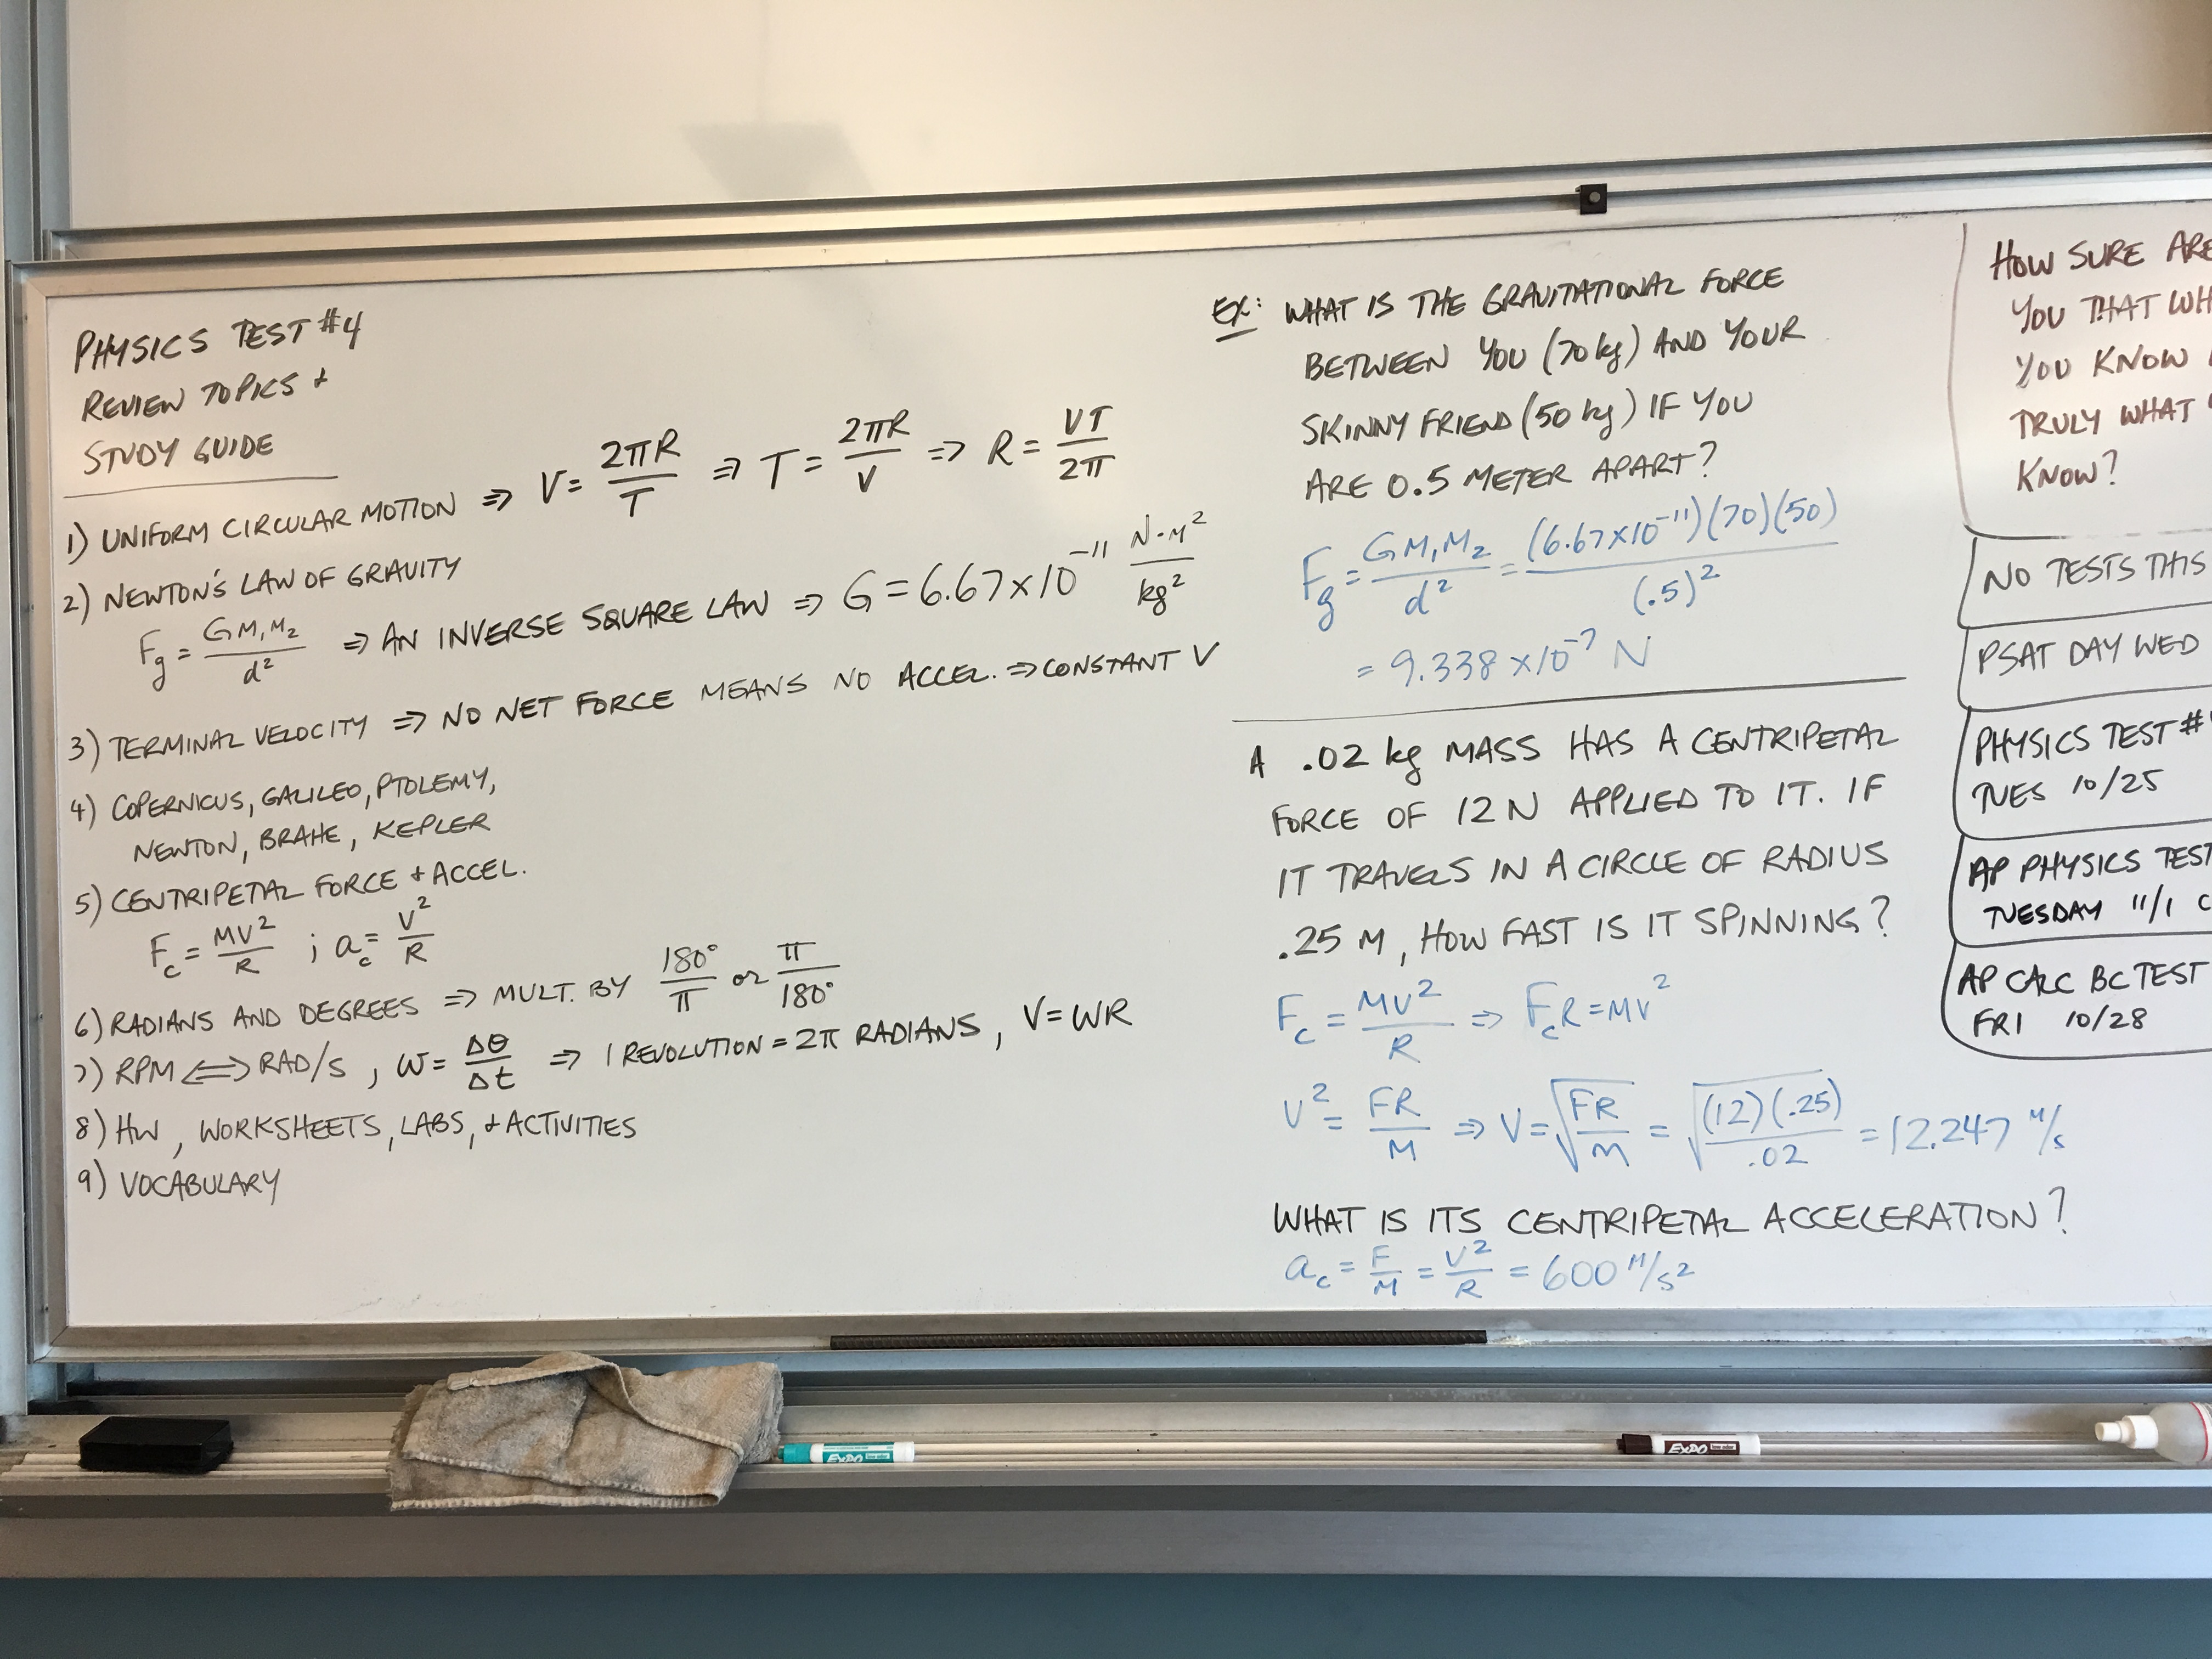 PHYSICS TEST #4
REVIEW TOPICS +
STUDY GUIDE
1) UNIFORM CIRCULAR MOTION ⇒ V = 2πR/T ⇒ T = 2πR/V ⇒ R = VT/2π
2) NEWTON'S LAW OF GRAVITY
Fg = GM₁M₂/d² ⇒ AN INVERSE SQUARE LAW ⇒ G = 6.67×10⁻¹¹ N·M²/kg²
3) TERMINAL VELOCITY ⇒ NO NET FORCE MEANS NO ACCEL. ⇒ CONSTANT V
4) COPERNICUS, GALILEO, PTOLEMY,
NEWTON, BRAHE, KEPLER
5) CENTRIPETAL FORCE + ACCEL.
Fc = MV²/R ; ac = V²/R
6) RADIANS AND DEGREES ⇒ MULT. BY 180°/π or π/180°
7) RPM ⇔ RAD/S, ω = Δθ/Δt ⇒ 1 REVOLUTION = 2π RADIANS, V = WR
8) HW, WORKSHEETS, LABS, + ACTIVITIES
9) VOCABULARY
EX: WHAT IS THE GRAVITATIONAL FORCE
BETWEEN YOU (70 kg) AND YOUR
SKINNY FRIEND (50 kg) IF YOU
ARE 0.5 METER APART?
Fg = GM₁M₂/d² = (6.67×10⁻¹¹)(70)(50)/(.5)²
= 9.338 ×10⁻⁷ N
A .02 kg MASS HAS A CENTRIPETAL
FORCE OF 12 N APPLIED TO IT. IF
IT TRAVELS IN A CIRCLE OF RADIUS
.25 M, HOW FAST IS IT SPINNING?
Fc = MV²/R ⇒ FcR = MV²
V² = FR/M ⇒ V = √(FR/M) = √((12)(.25)/.02) = 12.247 M/s
WHAT IS ITS CENTRIPETAL ACCELERATION?
ac = F/M = V²/R = 600 M/s²
HOW SURE ARE
YOU THAT WH
YOU KNOW
TRULY WHAT
KNOW?
NO TESTS THIS
PSAT DAY WED
PHYSICS TEST #
TUES 10/25
AP PHYSICS TEST
TUESDAY 11/1 C
AP CALC BC TEST
FRI 10/28
EXPO
EXPO